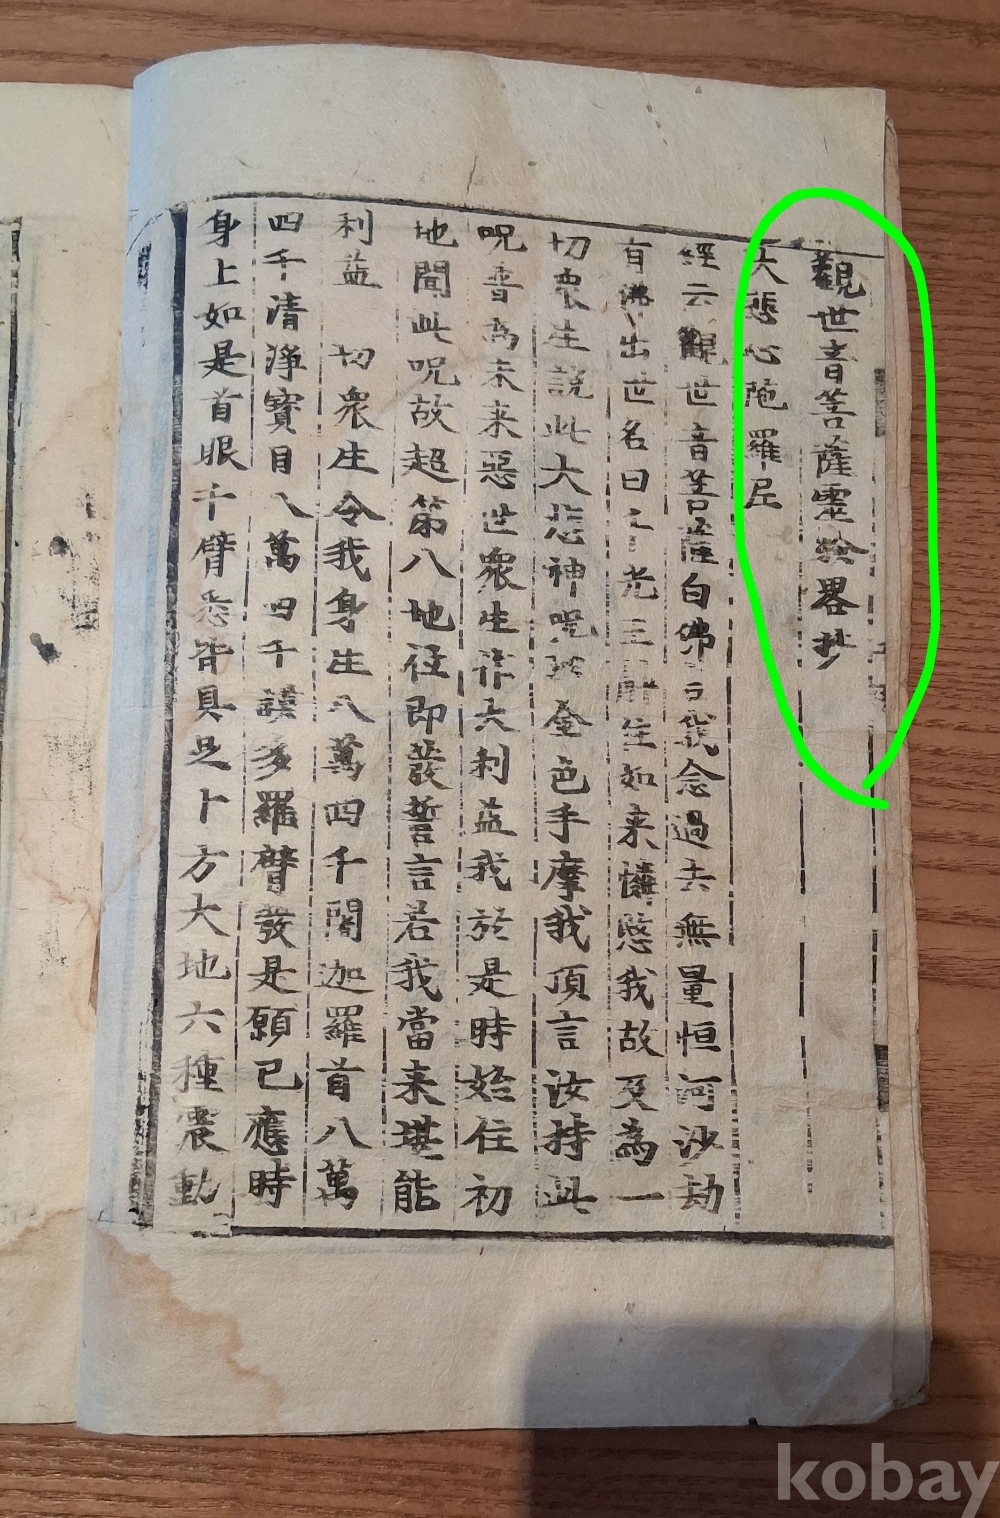 觀世音菩薩靈驗畧抄
大悲心陁羅尼
經云觀世音菩薩白佛言我念過去無量恒河沙劫
有佛出世名曰千光王靜住如来憐愍我故及為一
切衆生說此大悲神呪以金色手摩我頂言汝持此
呪普為未来惡世衆生作大利益我於是時始住初
地聞此呪故超第八地徃即發誓言若我當来堪能
利益 切衆生令我身生八萬四千閻迦羅首八萬
四千清淨寶目八萬四千謨多羅臂發是願已應時
身上如是首眼千臂悉皆具足十方大地六種震動
kobay